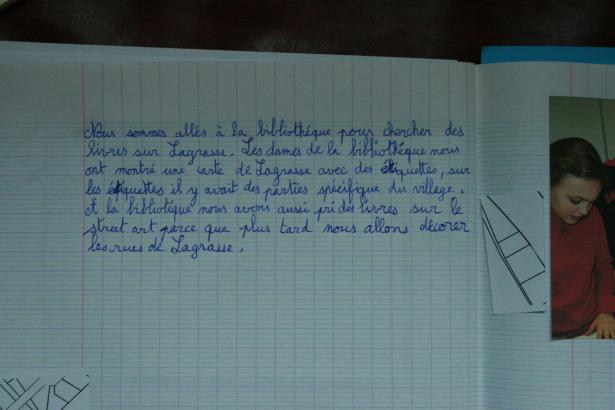 Nous sommes allés à la bibliothéque pour chercher des
livres sur Lagrasse. Les dames de la bibliothéque nous
ont montré une carte de Lagrasse avec des étiquettes, sur
les étiquettes il y avait des parties spécifique du village.
A la bibliotéque nous avons aussi pri des livres sur le
street art parce que plus tard nous allons décorer
les rues de Lagrasse.